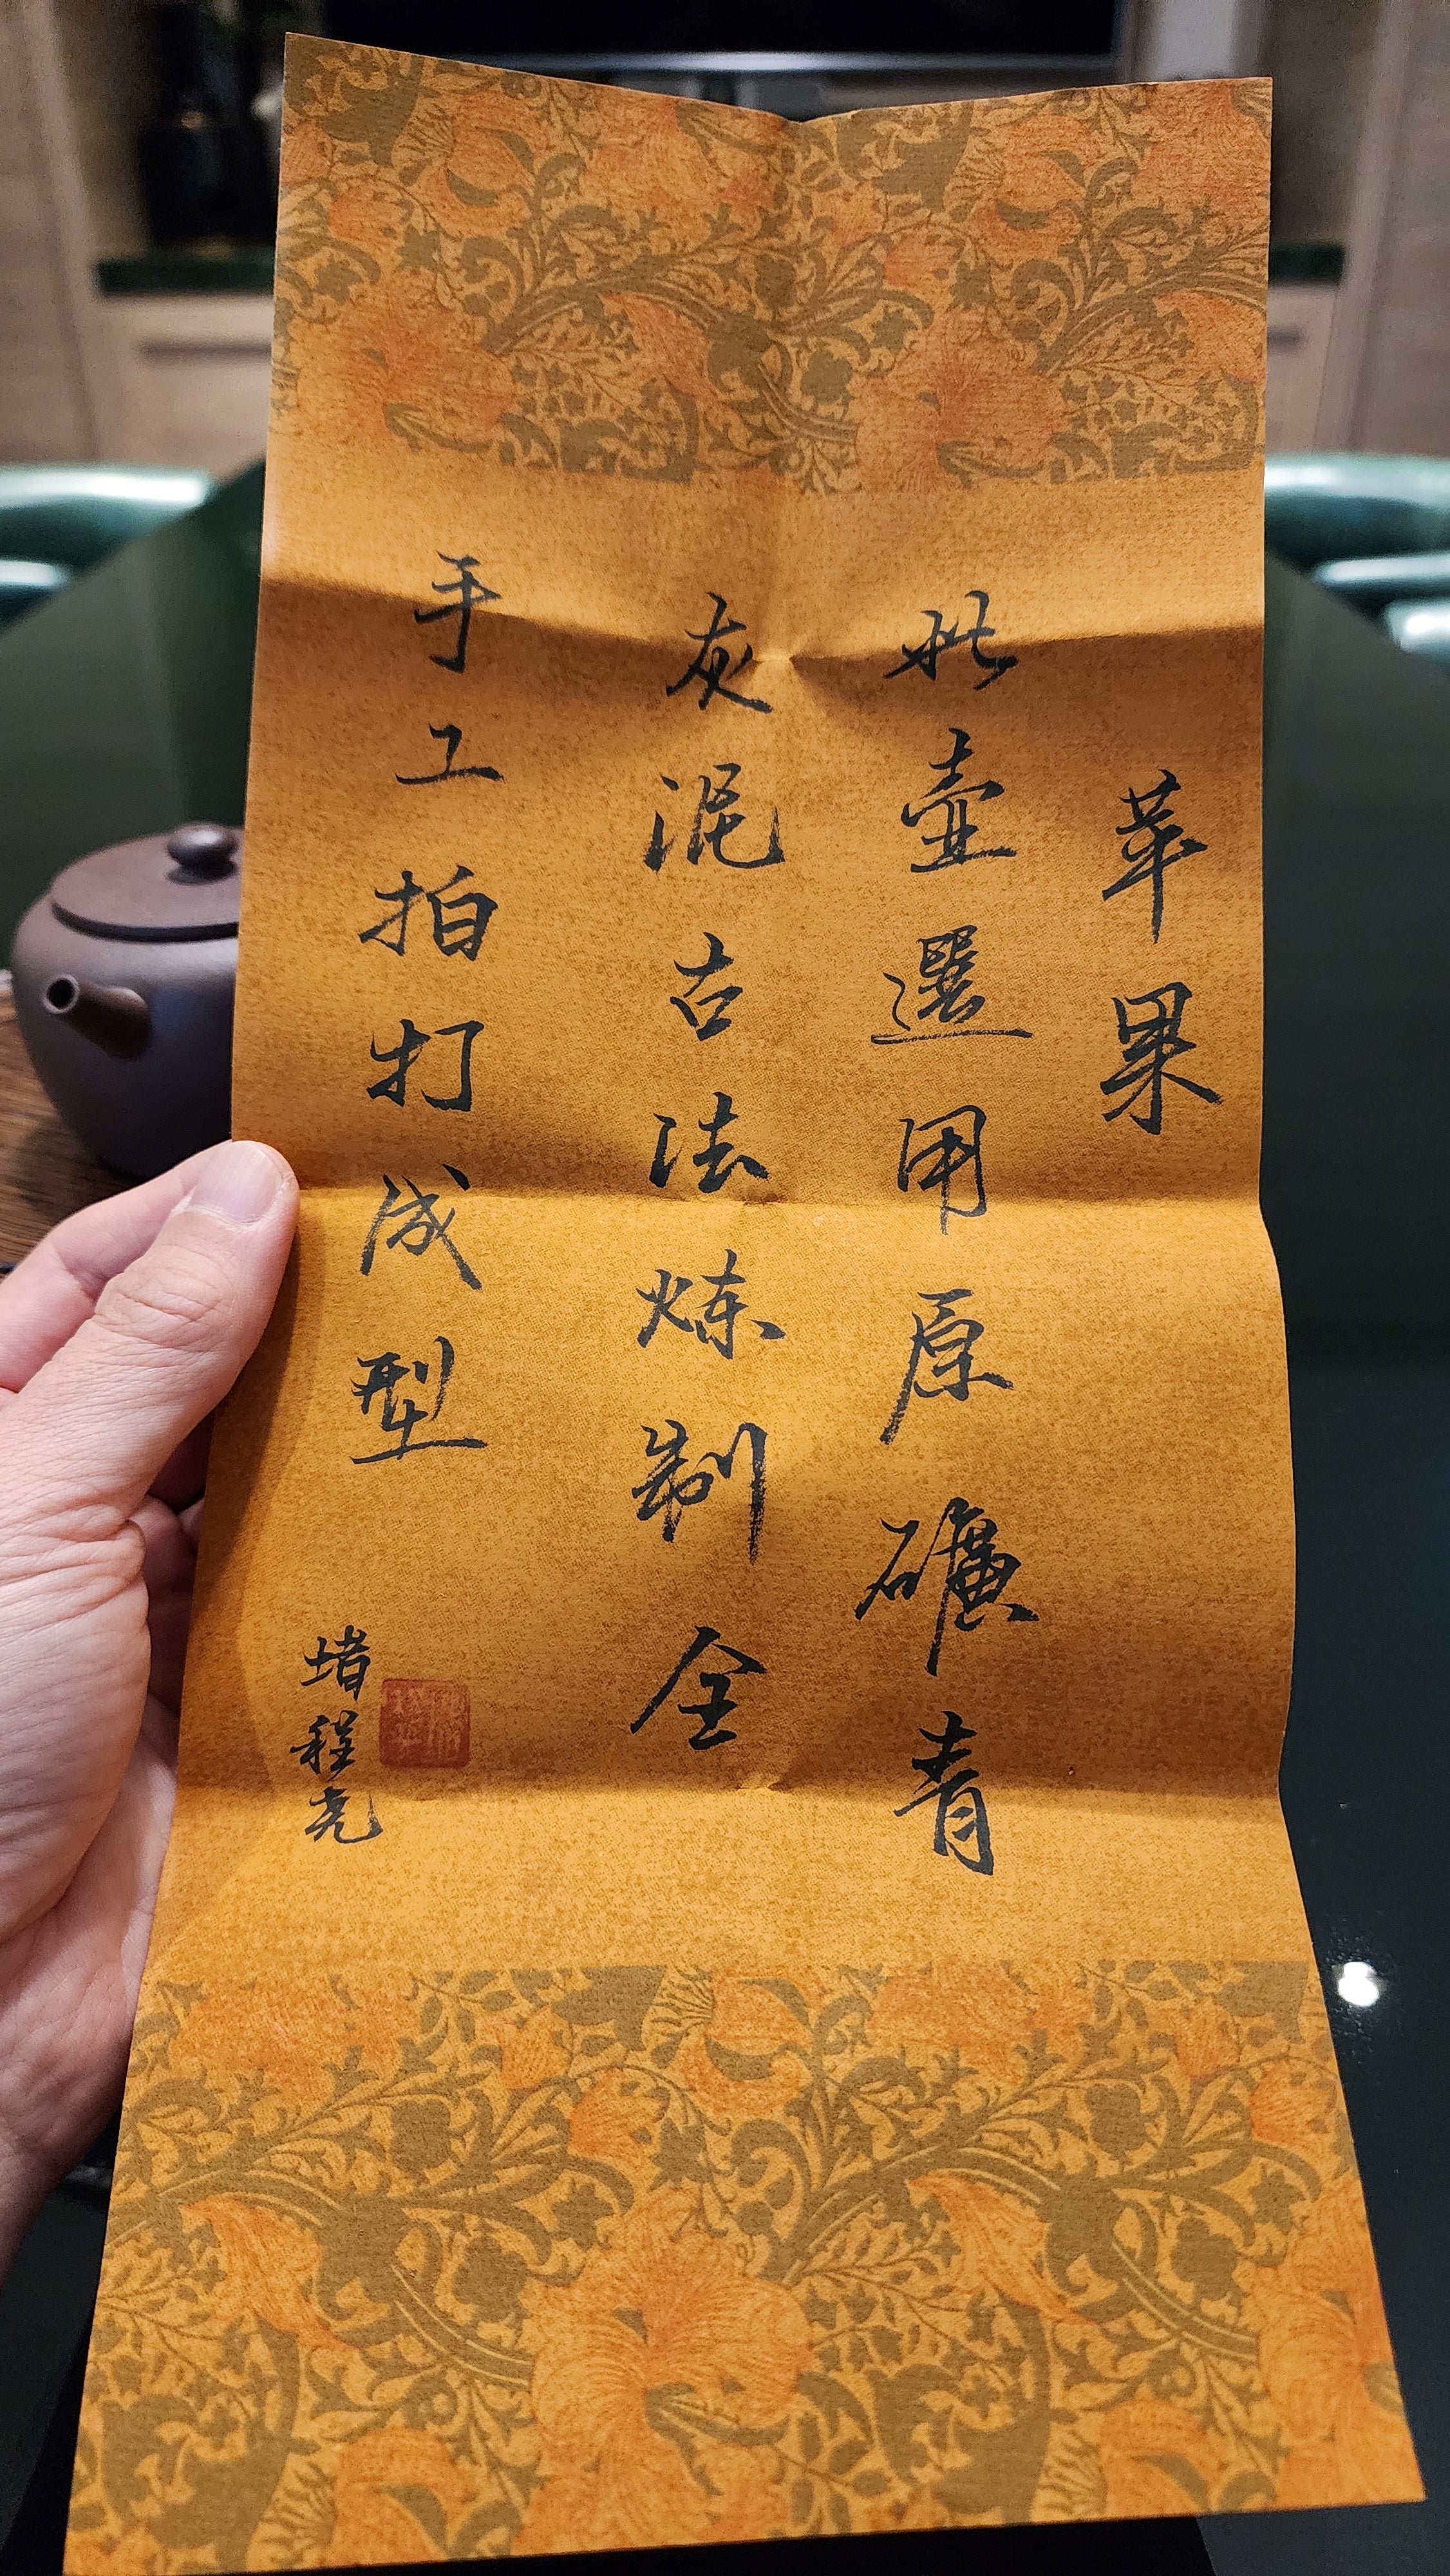 苹果
此壶選用原礦青
灰泥古法炼制全
手工拍打成型
堵程尧